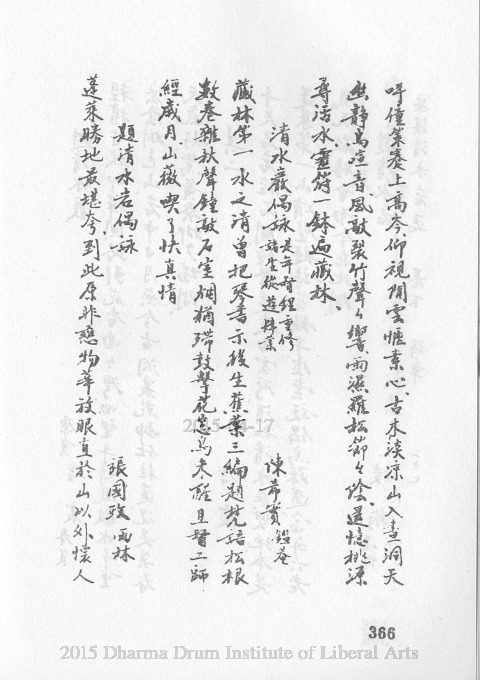 呼僮策蹇上高岑仰視閒雲愜素心古木淡凉山入畫洞天
幽靜鳥喧音風敲翠竹聲々響雨濕羅松節々陰還憶桃源
尋活水靈符一鉢遍藏林
清水巖偶詠 是年督經重修 諸生從遊肄業
陳希賓 鑑菴
藏林第一水之清曾把琴書示後生蕉葉三編題梵語松根
數卷雜秋聲鐘敲石室烟猶滯鼓擊花窓鳥夫醒且督工師
經歲月山薇喫了快真情
題清水岩偶詠
張國政 雨林
蓬萊勝地最堪夸到此原非戀物華放眼直於山以外懷人
2015-04-17
366
2015 Dharma Drum Institute of Liberal Arts